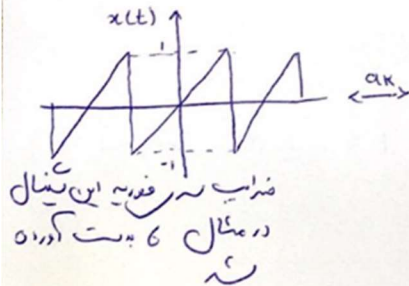 x(t)
۱
aₖ
-۱
ضرایب سری فوریه این سیگنال
در مثال ۶ به دست آورده
شد